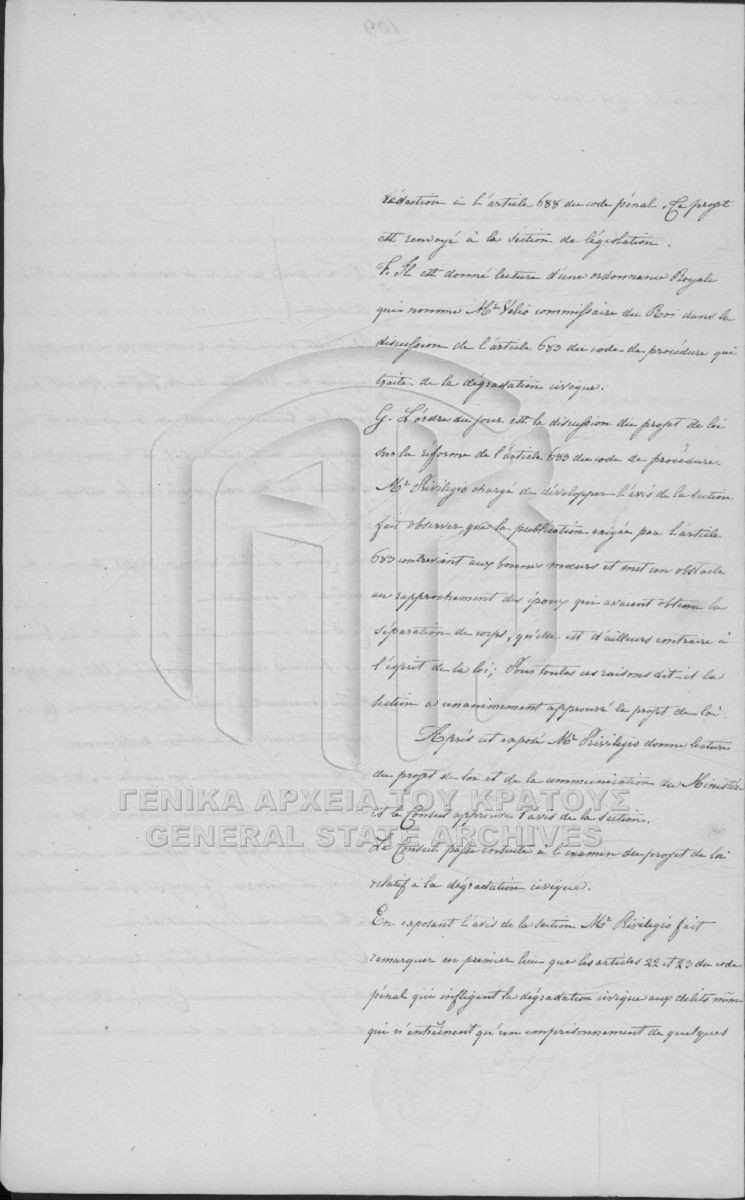 rédaction à l'article 688 du code pénal. Ce projet
est renvoyé à la section de législation.
F. Il est donné lecture d'une ordonnance Royale
qui nomme Mr Vélio commissaire du Roi dans la
discussion de l'article 683 du code de procédure qui
traite de la dégradation civique.
G. L'ordre du jour est la discussion du projet de loi
sur la réforme de l'article 683 du code de procédure.
Mr Privilegio chargé de développer l'avis de la section
fait observer, que la publication exigée par l'article
683 contrevient aux bonnes mœurs et met un obstacle
au rapprochement des époux qui avaient obtenu la
séparation de corps, qu'elle est d'ailleurs contraire à
l'esprit de la loi; Pour toutes ces raisons dit-il la
section a unanimement approuvé le projet de loi.
Après cet exposé Mr Privilegio donne lecture
du projet de loi et de la communication du Ministère
et le Conseil approuve l'avis de la section.
Le Conseil passe ensuite à l'examen du projet de loi
relatif à la dégradation civique.
En exposant l'avis de la section Mr Privilegio fait
remarquer en premier lieu que les articles 22 et 23 du code
pénal qui infligent la dégradation civique aux délits même
qui n'entraînent qu'un emprisonnement de quelques
ΓΕΝΙΚΑ ΑΡΧΕΙΑ ΤΟΥ ΚΡΑΤΟΥΣ
GENERAL STATE ARCHIVES